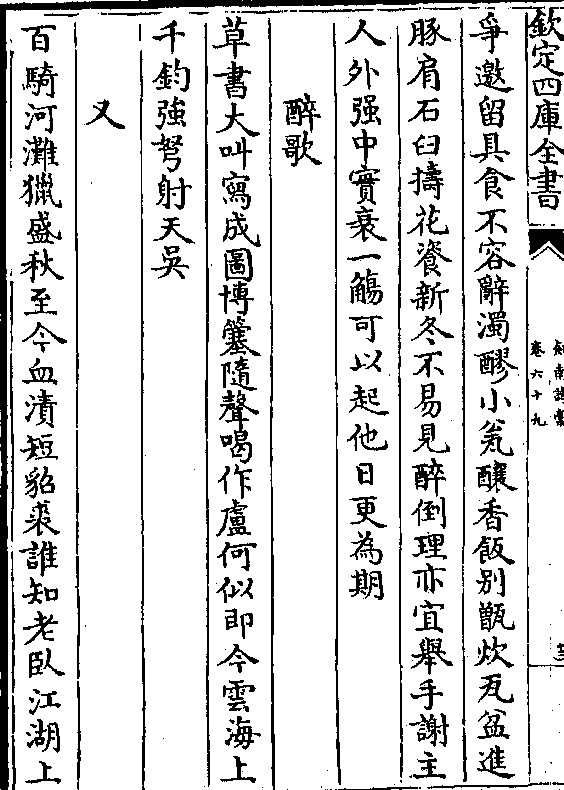 欽定四庫全書
劍南詩稾
卷六十九
爭邀留具食不容辭濁醪小瓮釀香飯别甑炊瓦盆進
豚肩石臼擣花餈新冬不易見醉倒理亦宜舉手謝主
人外强中實衰一觴可以起他日更為期
醉歌
草書大叫寫成圖博簺隨聲喝作盧何似即今雲海上
千鈞強弩射天吳
又
百騎河灘獵盛秋至今血漬短貂裘誰知老臥江湖上